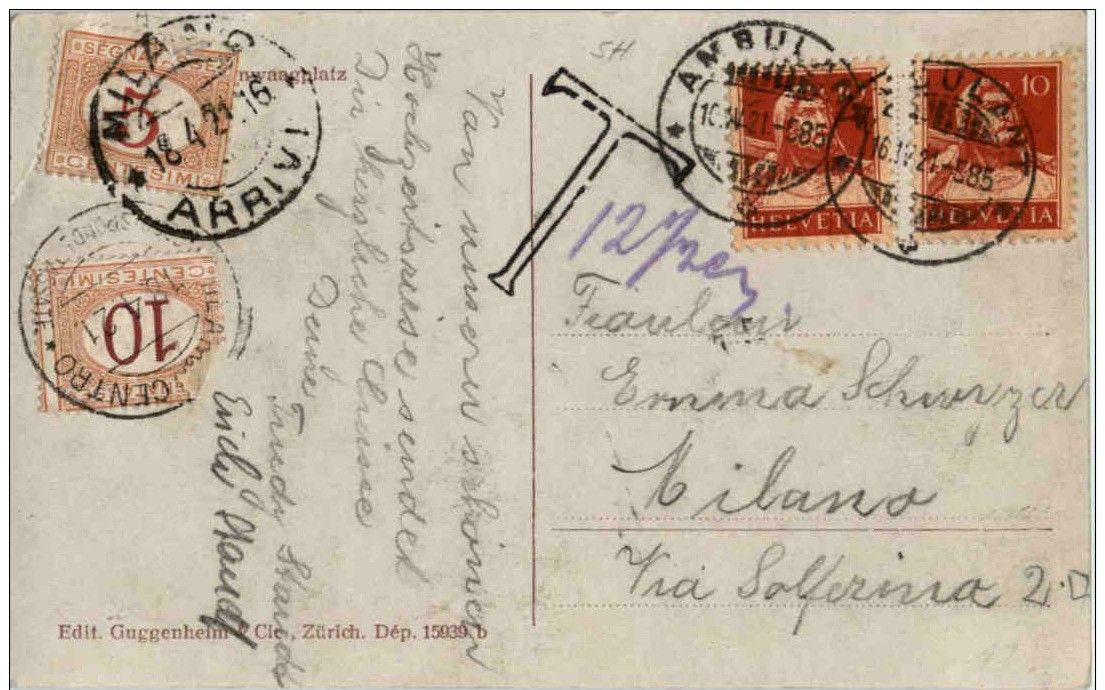 nwaagplatz
Von unserer schönen
Hochzeitsreise sendet
Dir herzliche Grüsse
Deine
Trudi
Edit. Guggenheim & Cie., Zürich. Dép. 15939 b
SEGNATASSE
5
CENTESIMI
MILANO
18.4.21.16
ARRIVI
CENTESIMI
10
CENTRO
5H
T
12½ c.
AMBULANT
16.IV.21.-585
HELVETIA
AMBULANT
16.IV.21.-585
10
HELVETIA
Fräulein
Emma Schwyzer
Milano
Via Solferina 2.